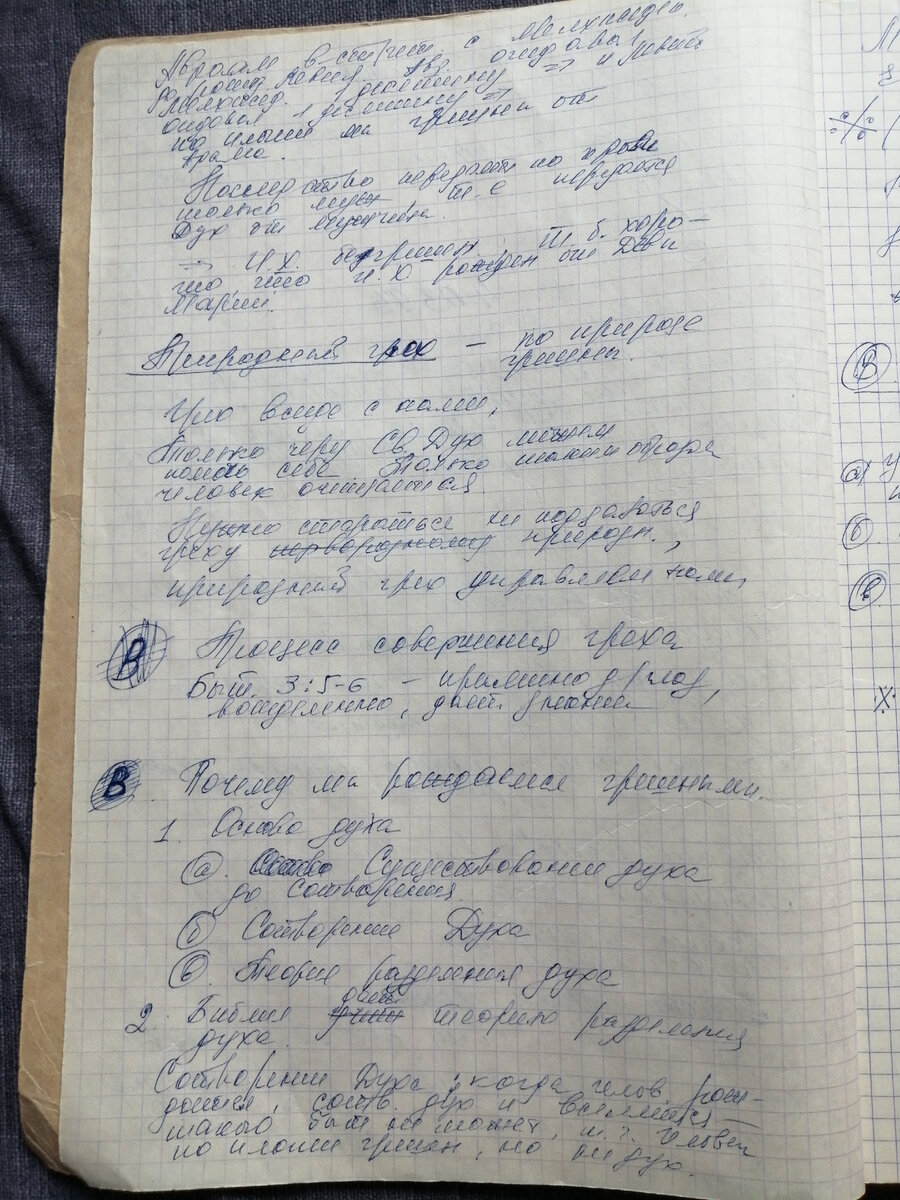 Авраам встретил с Мелхиседек.
Мелхисед. Авр. отдавал
отдавал 1 десятину ⇒ и Левит
1 десятину ⇒
по плоти мы грешны от
Наследство передает по крови
только муж т.е передается
Дух от мужчины.
⇒ И.Х. безгрешен, т.б. хоро-
шо, что И.Х рожден от Деви
Марии.
Природный грех — по природе
грешны.
Что всюду с нами,
Только через Св. Дух можем
помочь себе. Только таким образом
человек очищается.
Нужно стараться не поддаваться
греху первородному природн.,
природный грех управляет нами,
В Процесс совершения греха
Быт. 3:5-6 – приятно д/глаз,
вожделенно, дает знание
В Почему мы рождаемся грешными.
1. Основа духа
а. Существование духа
до сотворения
б Сотворение Духа
в. Теория разделения духа
2. Библия дает теорию разделения
духа.
Сотворение Духа: когда челов. рож-
дается, сотв. дух и вселяется
такого быть не может, т.к. человек
по плоти грешен, но не дух.
В
а
б
в